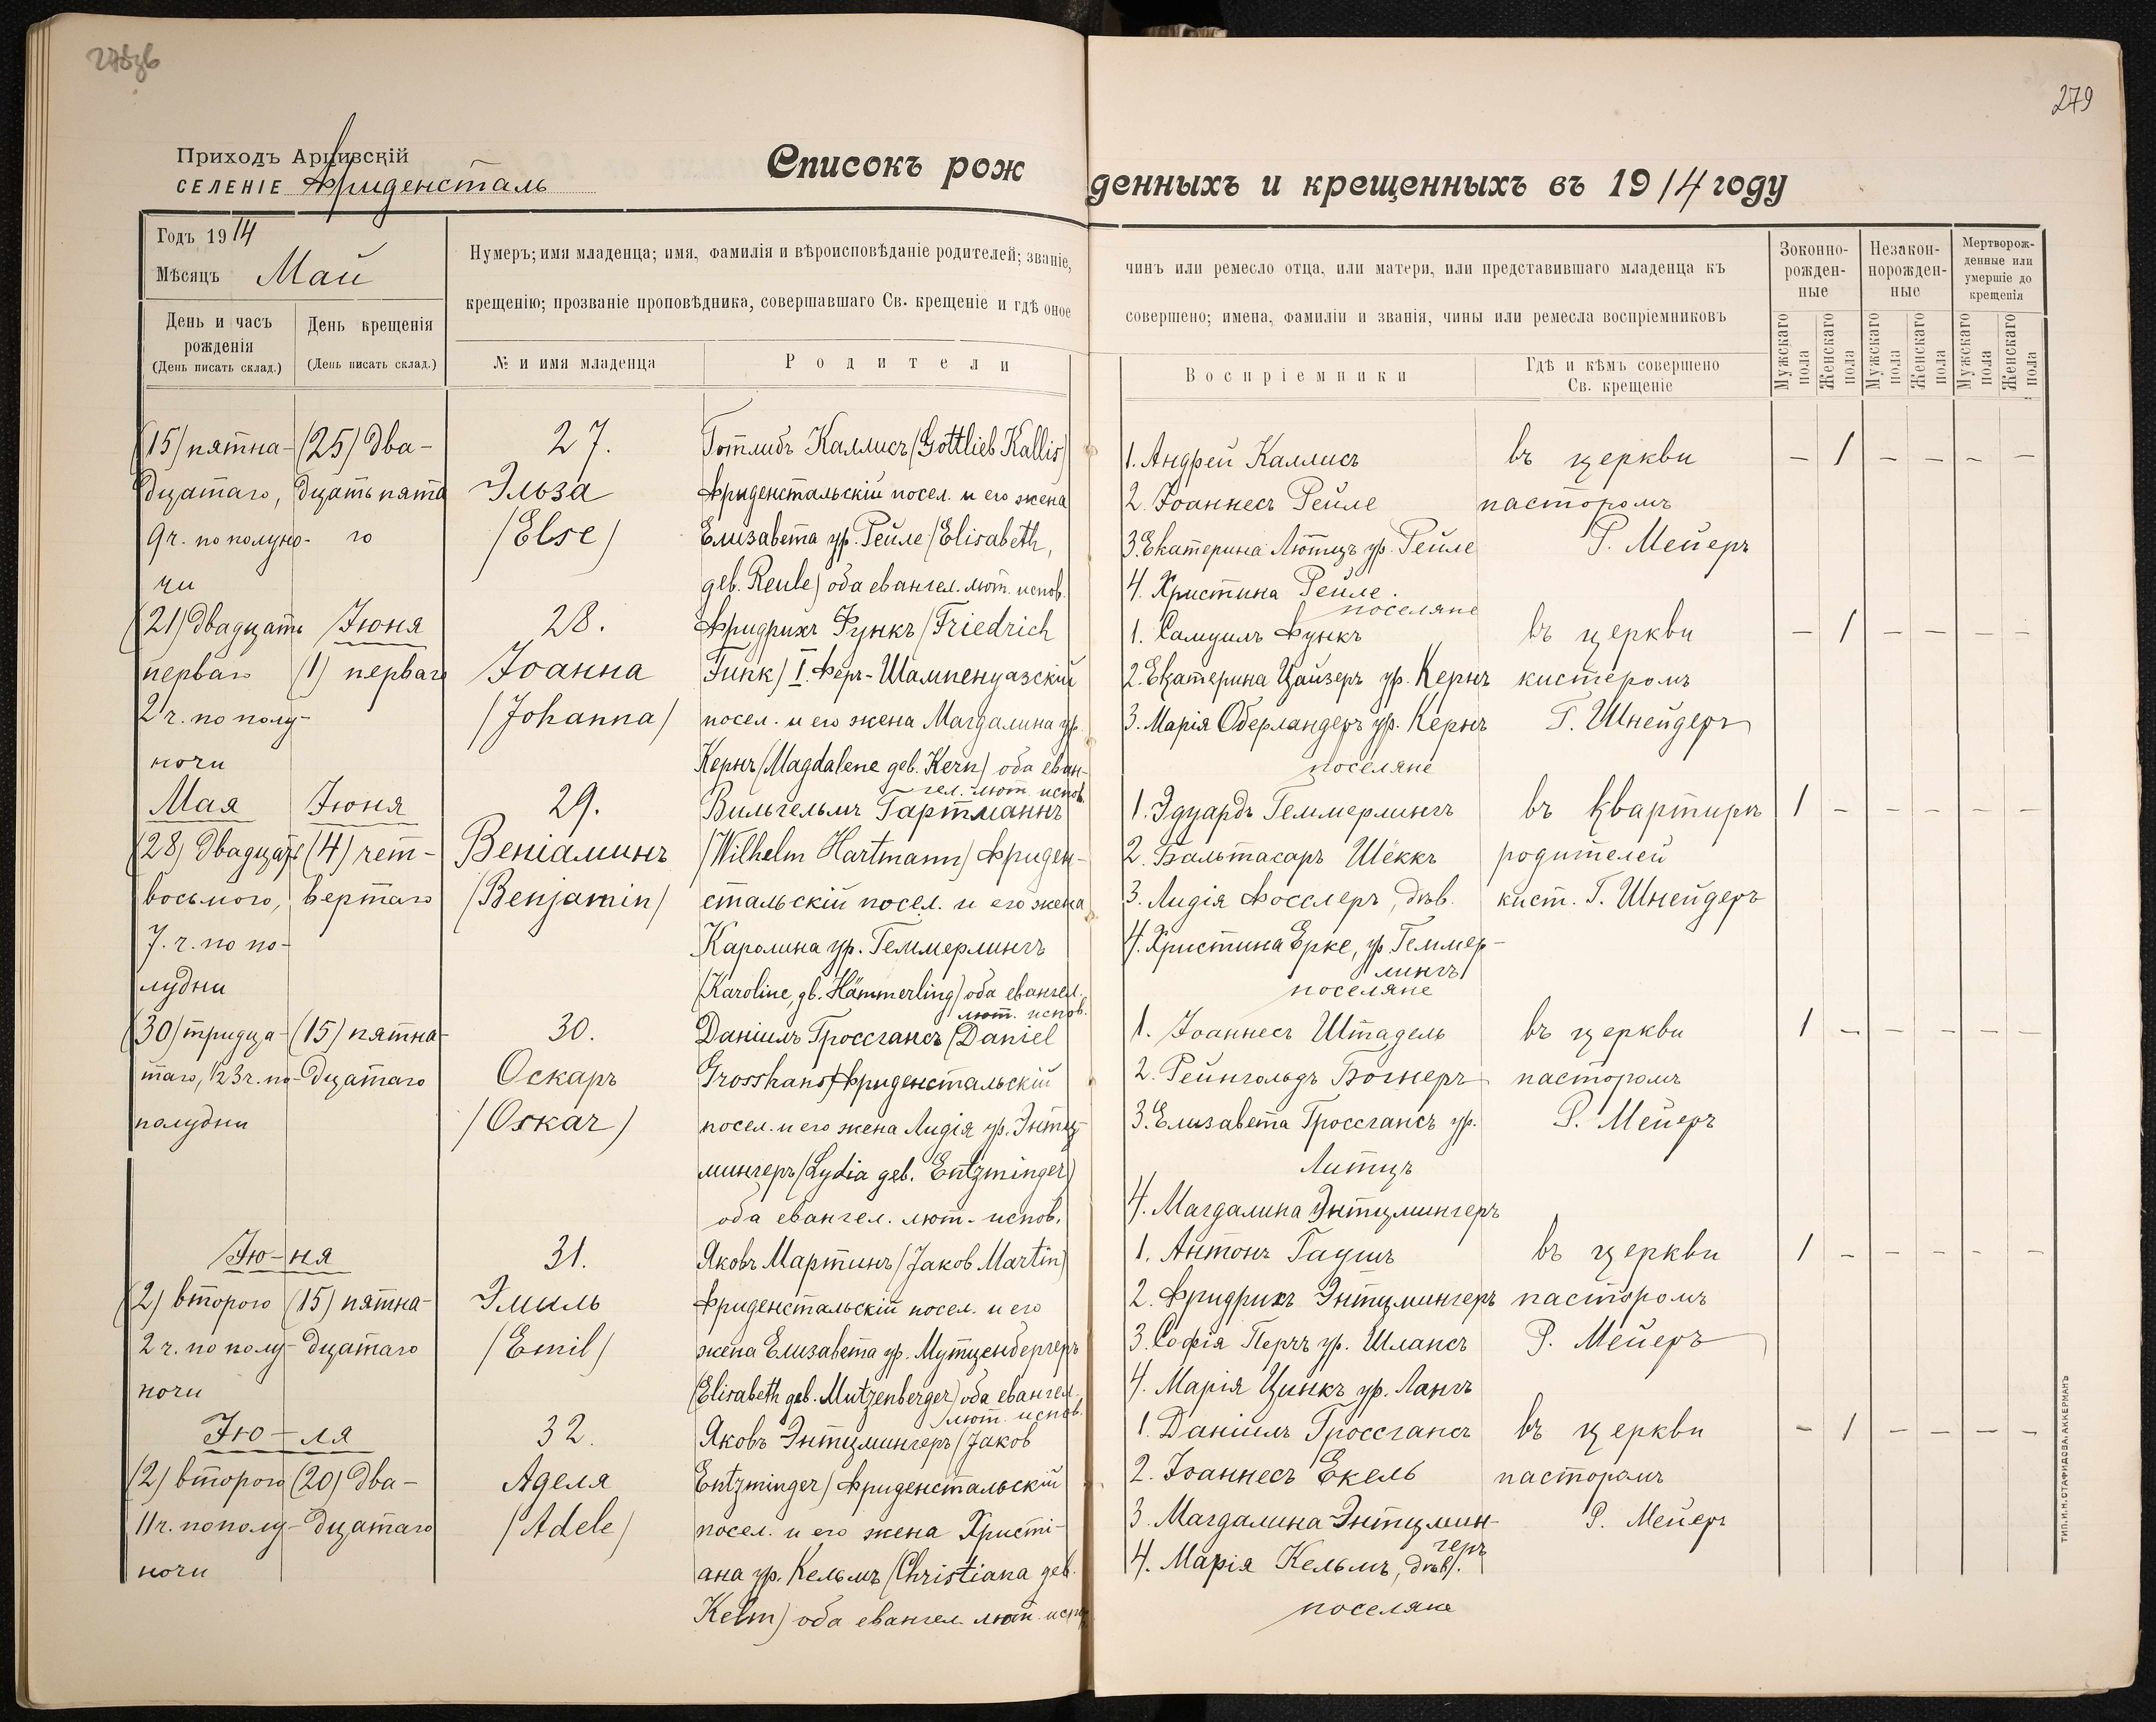 279
Приходъ Арцизскій
СЕЛЕНІЕ Фриденсталь
Списокъ рож
денныхъ и крещенныхъ въ 1914 году
Годъ 1914
Мѣсяцъ Май
День и часъ
рожденія
(День писать склад.)
День крещенія
(День писать склад.)
Нумеръ; имя младенца; имя, фамилія и вѣроисповѣданіе родителей; званіе,
крещенію; прозваніе проповѣдника, совершавшаго Св. крещеніе и гдѣ оное
№ и имя младенца
Родители
чинъ или ремесло отца, или матери, или представившаго младенца къ
совершено; имена, фамиліи и званія, чины или ремесла воспріемниковъ
Воспріемники
Гдѣ и кѣмъ совершено
Св. крещеніе
Зоконно-
рожден-
ные
Незакон-
норожден-
ные
Мертворож-
денные или
умершіе до
крещенія
Мужскаго
пола
Женскаго
пола
Мужскаго
пола
Женскаго
пола
Мужскаго
пола
Женскаго
пола
(15) пятна-
дцатаго,
9 ч. по полуно-
чи
(25) два-
дцать пята
го
27.
Эльза
(Else)
Готлибъ Каллисъ (Gottlieb Kallis)
Фриденстальскій посел. и его жена
Елизавета ур. Рейле (Elisabeth,
geb. Reule) оба евангел. лют. испов.
1. Андрей Каллисъ
2. Іоаннесъ Рейле
3. Екатерина Лютцъ ур. Рейле
4. Христина Рейле.
поселяне
въ церкви
пасторомъ
Р. Мейеръ
– 1 – – – –
(21) двадцать
перваго
2 ч. по полу-
ночи
Іюня
(1) перваго
28.
Іоанна
(Johanna)
Фридрихъ Функъ (Friedrich
Funk) I. Феръ-Шампенуазскій
посел. и его жена Магдалина ур.
Кернъ (Magdalene geb. Kern) оба еван-
гел. лют. испов.
1. Самуилъ Функъ
2. Екатерина Цайзеръ ур. Кернъ
3. Марія Оберландеръ ур. Кернъ
поселяне
въ церкви
кистеромъ
Г. Шнейдеръ
– 1 – – – –
Мая
(28) двадцать
восьмого,
7. ч. по по-
лудни
Іюня
(4) чет-
вертаго
29.
Веніаминъ
(Benjamin)
Вильгельмъ Гартманнъ
(Wilhelm Hartmann) Фриден-
стальскій посел. и его жена
Каролина ур. Геммерлингъ
(Karoline, gb. Hämmerling) оба евангел.
лют. испов.
1. Эдуардъ Геммерлингъ
2. Бальтасаръ Шёккъ
3. Лидія Фосслеръ, дѣв.
4. Христина Ерке, ур. Геммер-
лингъ
поселяне
въ квартирѣ
родителей
кист. Г. Шнейдеръ
1 – – – – –
(30) тридца-
таго, 1/2 3 ч. по-
полудни
(15) пятна-
дцатаго
30.
Оскаръ
(Oskar)
Даніилъ Гроссгансъ (Daniel
Grosshans) Фриденстальскій
посел. и его жена Лидія ур. Энтц-
мингеръ (Lydia geb. Entzminger)
оба евангел. лют. испов.
1. Іоаннесъ Штадель
2. Рейнгольдъ Богнеръ
3. Елизавета Гроссгансъ ур.
Литцъ
4. Магдалина Энтцмингеръ
въ церкви
пасторомъ
Р. Мейеръ
1 – – – – –
Ію-ня
(2) второго
2 ч. по полу-
ночи
(15) пятна-
дцатаго
31.
Эмиль
(Emil)
Яковъ Мартинъ (Jakob Martin)
Фриденстальскій посел. и его
жена Елизавета ур. Мутценбергеръ
(Elisabeth geb. Mutzenberger) оба евангел.
лют. испов.
1. Антонъ Гаушъ
2. Фридрихъ Энтцмингеръ
3. Софія Перчъ ур. Шлапсъ
4. Марія Цинкъ ур. Лангъ
въ церкви
пасторомъ
Р. Мейеръ
1 – – – – –
Ію-ля
(2) второго
11 ч. пополу-
ночи
(20) два-
дцатаго
32.
Аделя
(Adele)
Яковъ Энтцмингеръ (Jakob
Entzminger) Фриденстальскій
посел. и его жена Христі-
ана ур. Кельмъ (Christiana geb.
Kelm) оба евангел. лют. испов.
1. Даніилъ Гроссгансъ
2. Іоаннесъ Екель
3. Магдалина Энтцмин-
геръ
4. Марія Кельмъ, дѣв.
поселяне
въ церкви
пасторомъ
Р. Мейеръ
– 1 – – – –
ТИП. И. Н. СТАФИДОВА. АККЕРМАНЪ